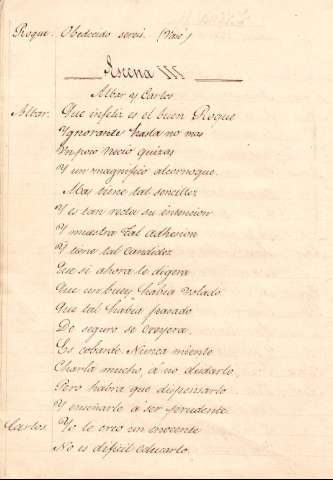 Roque. Obedecido sereis. (Vase)
Escena III
Albar y Carlos
Albar. Que infeliz es el buen Roque
Ygnorante hasta no mas
Impio necio quizas
Y un magnifico alcornoque.
Mas tiene tal sencillez
Y es tan recta su intencion
Y muestra tal adhesion
Y tiene tal candidez
Que si ahora le digera
Que un buey habia volado
Que tal habia pasado
De seguro se creyera.
Es cobarde. Nunca miente
Charla mucho, á no dudarlo
Pero habra que dispensarlo
Y enseñarle á ser prudente.
Carlos. Yo le creo un inocente
No es dificil educarlo.